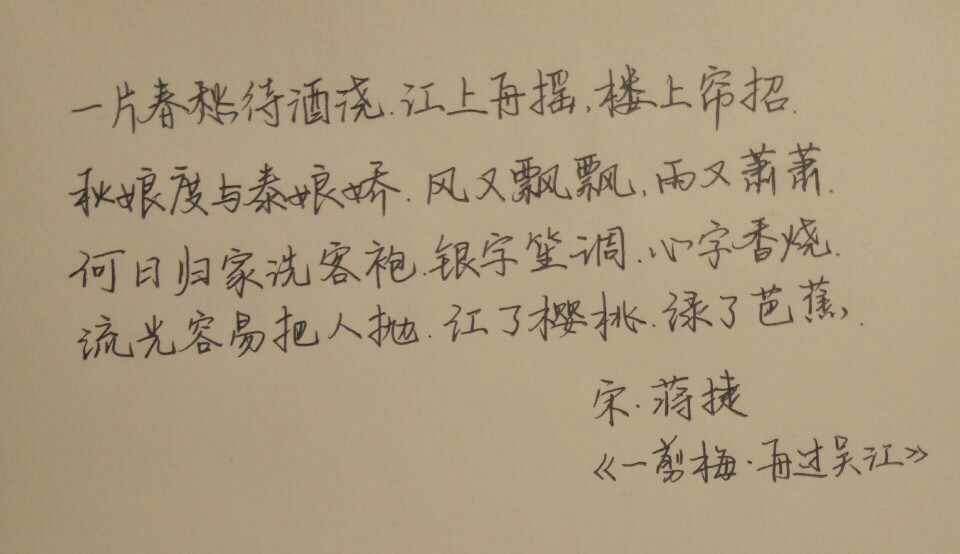 一片春愁待酒浇.江上再摇,楼上帘招.
秋娘度与泰娘娇.风又飘飘,雨又萧萧.
何日归家洗客袍.银字笙调.心字香烧.
流光容易把人抛.红了樱桃.绿了芭蕉.
宋.蒋捷
《一剪梅·再过吴江》